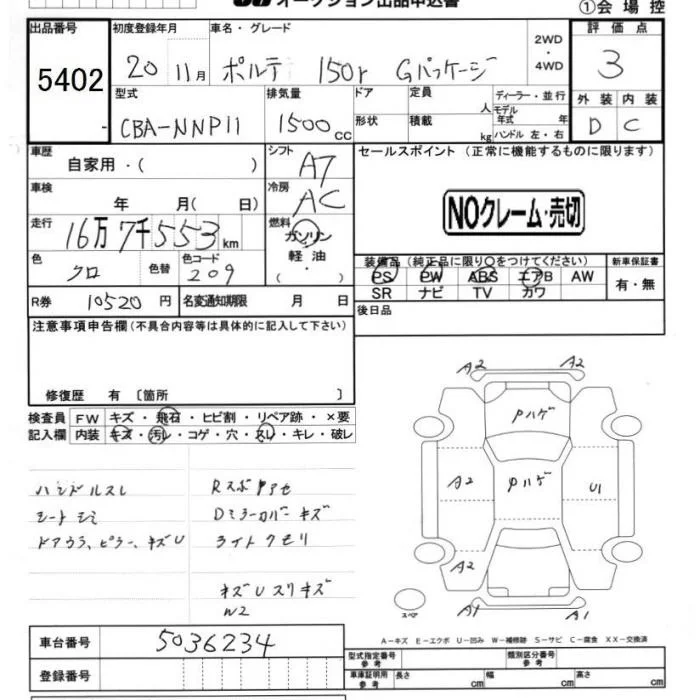 オークション出品申込書
①会場控
出品番号
5402
初度登録年月 車名・グレード
20 11月 ポルテ 150r Gパッケージ
2WD
4WD
評価点
3
型式 排気量 ドア 定員 ディーラー・並行
CBA-NNP11 1500cc 形状 積載 人 kg モデル年式 年 ハンドル 左・右
外装 内装
D C
車歴 自家用・( )
シフト AT
セールスポイント (正常に機能するものに限ります)
車検 年 月( 日)
冷房 AC
NOクレーム・売切
走行 16万7千553km
燃料 ガソリン・軽油・( )
色 クロ 色替 色コード 209
装備品 (純正品に限り○をつけてください) 新車保証書
PS PW ABS エアB AW 有・無
SR ナビ TV カワ
R券 10520円 名変通知期限 月 日
後日品
注意事項申告欄(不具合内容等は具体的に記入して下さい)
修復歴 有 〔箇所 〕
検査員 FW キズ・飛石・ヒビ割・リペア跡・×要
記入欄 内装 キズ・汚レ・コゲ・穴・スレ・キレ・破レ
ハンドルスレ
シートシミ
ドアウラ、ピラー、キズU
Dミラーカバーキズ
ライトクモリ
キズUスリキズ
W2
A2 A2
Pハゲ
A2 Pハゲ U1
A2
A1 A1
スペア
A-キズ E-エクボ U-凹み W-補修跡 S-サビ C-腐食 XX-交換済
車台番号 5036234
登録番号
型式指定番号 参考 類別区分番号 参考
車庫証明用 参考 長さ cm 幅 cm 高さ cm